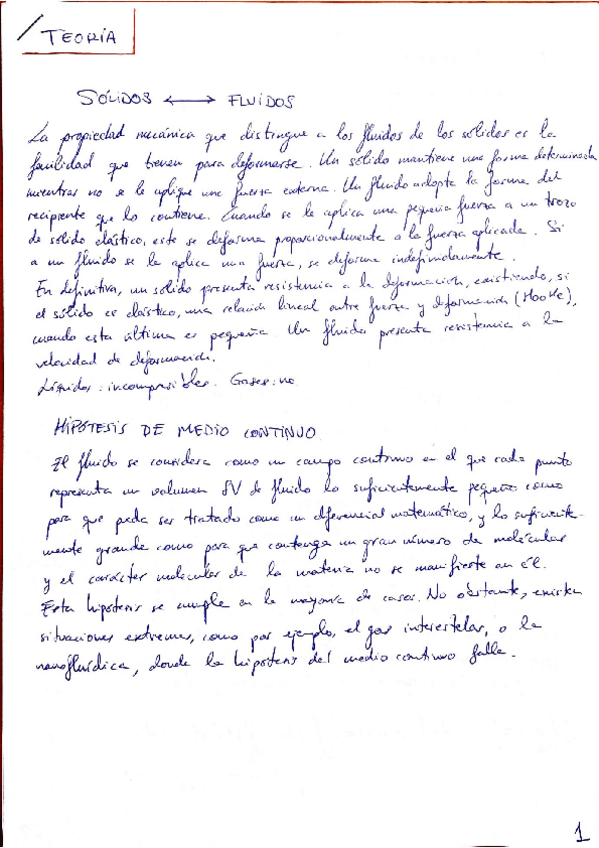 TEORÍA
SÓLIDOS ⟷ FLUIDOS
La propiedad mecánica que distingue a los fluidos de los sólidos es la
facilidad que tienen para deformarse. Un sólido mantiene una forma determinada
mientras no se le aplique una fuerza externa. Un fluido adopta la forma del
recipiente que lo contiene. Cuando se le aplica una pequeña fuerza a un trozo
de sólido elástico, este se deforma proporcionalmente a la fuerza aplicada. Si
a un fluido se le aplica una fuerza, se deforma indefinidamente.
En definitiva, un sólido presenta resistencia a la deformación, existiendo, si
el sólido es elástico, una relación lineal entre fuerza y deformación (Hooke),
cuando esta última es pequeña. Un fluido presenta resistencia a la
velocidad de deformación.
Líquidos: incompresibles. Gases: no.
HIPÓTESIS DE MEDIO CONTINUO
El fluido se considera como un campo continuo en el que cada punto
representa un volumen δV de fluido lo suficientemente pequeño como
para que pueda ser tratado como un diferencial matemático, y lo suficiente-
mente grande como para que contenga un gran número de moléculas
y el carácter molecular de la materia no se manifieste en él.
Esta hipótesis se cumple en la mayoría de casos. No obstante, existen
situaciones extremas, como por ejemplo, el gas interestelar, o la
nanofluídica, donde la hipótesis del medio continuo falla.
1